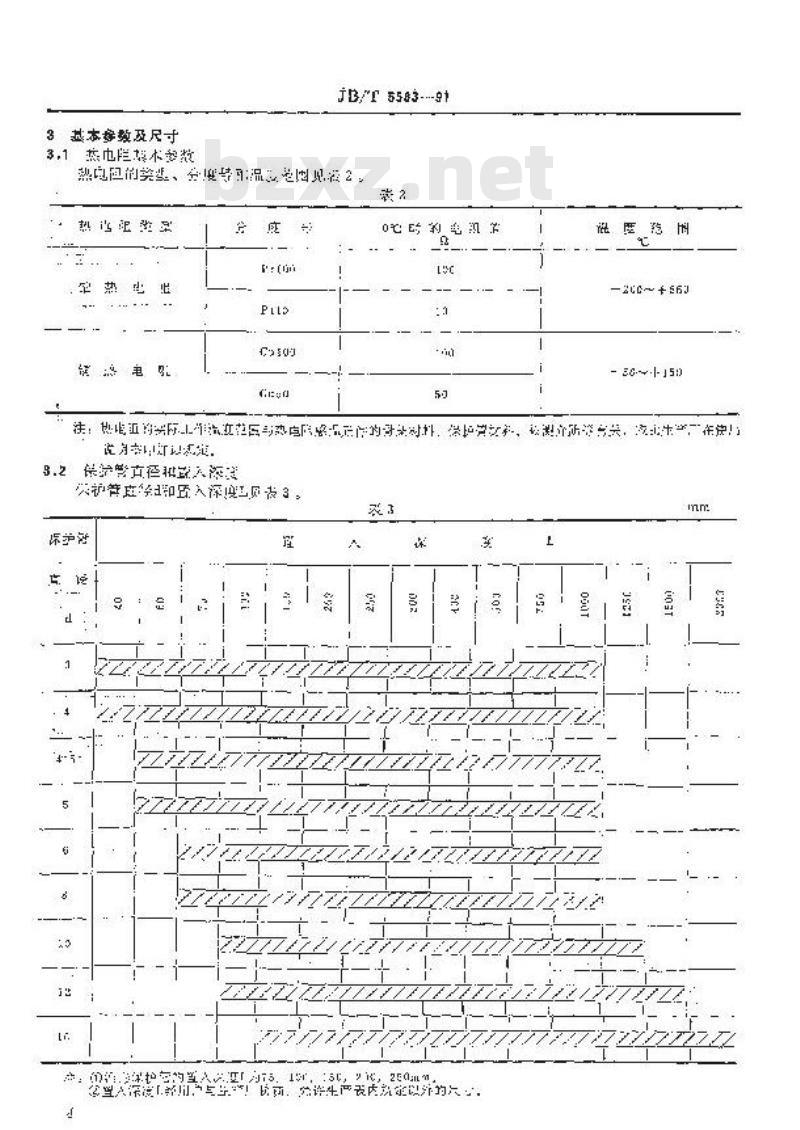 JB/T 5583—91
3 基本参数及尺寸
3.1 热电阻基本参数
热电阻的类型、分度号和温度范围见表 2 。
bzxz.net
表 2
热电阻类型 分度号 0℃时的电阻值 Ω 温度范围 ℃
Pt100 100
铂热电阻 -200~+650
Pt10 10
Cu100 100
铜热电阻 -50~+150
Cu50 50
注：热电阻的实际工作温度范围与热电阻感温元件的骨架材料、保护管材料、被测介质等有关，应由生产厂在使用
说明书中加以规定。
3.2 保护管直径和置入深度
保护管直径和置入深度见表 3 。
表 3 mm
保护管 置入深度 L
直径
d 60 75 100 150 200 250 300 400 500 750 1000 1250 1500 2000
3
4
4.5
5
6
8
10
12
16
保护管的置入深度 为75， 150， 200， 250mm。
②置入深度L经用户与生产厂协商，允许生产表内规定以外的尺寸。